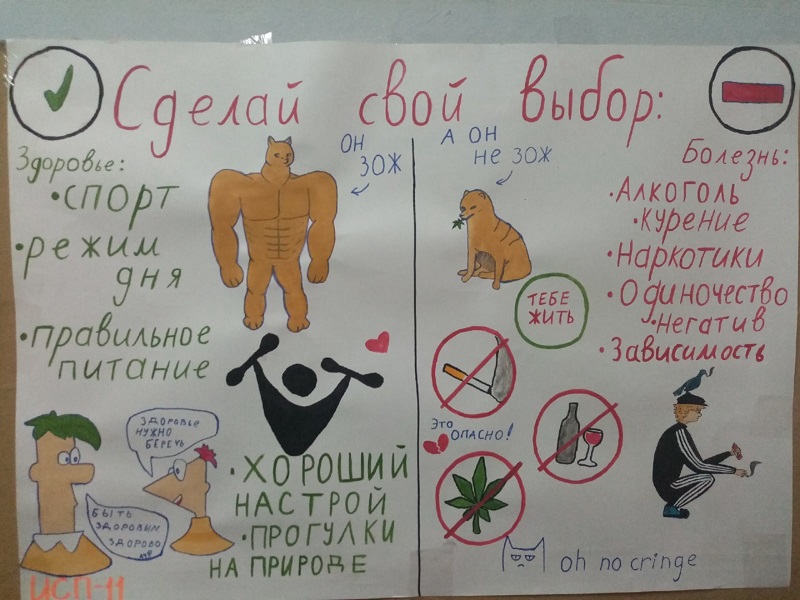 Сделай свой выбор:
Здоровье:
• спорт
• режим
дня
• правильное
питание
он
зож
Здоровье
нужно
беречь
Быть
здоровым
здорово
• хороший
настрой
• прогулки
на природе
ИСП-11
а он
не зож
Болезнь:
• Алкоголь
• курение
• Наркотики
• Одиночество
• негатив
• Зависимость
тебе
жить
это
опасно!
oh no cringe